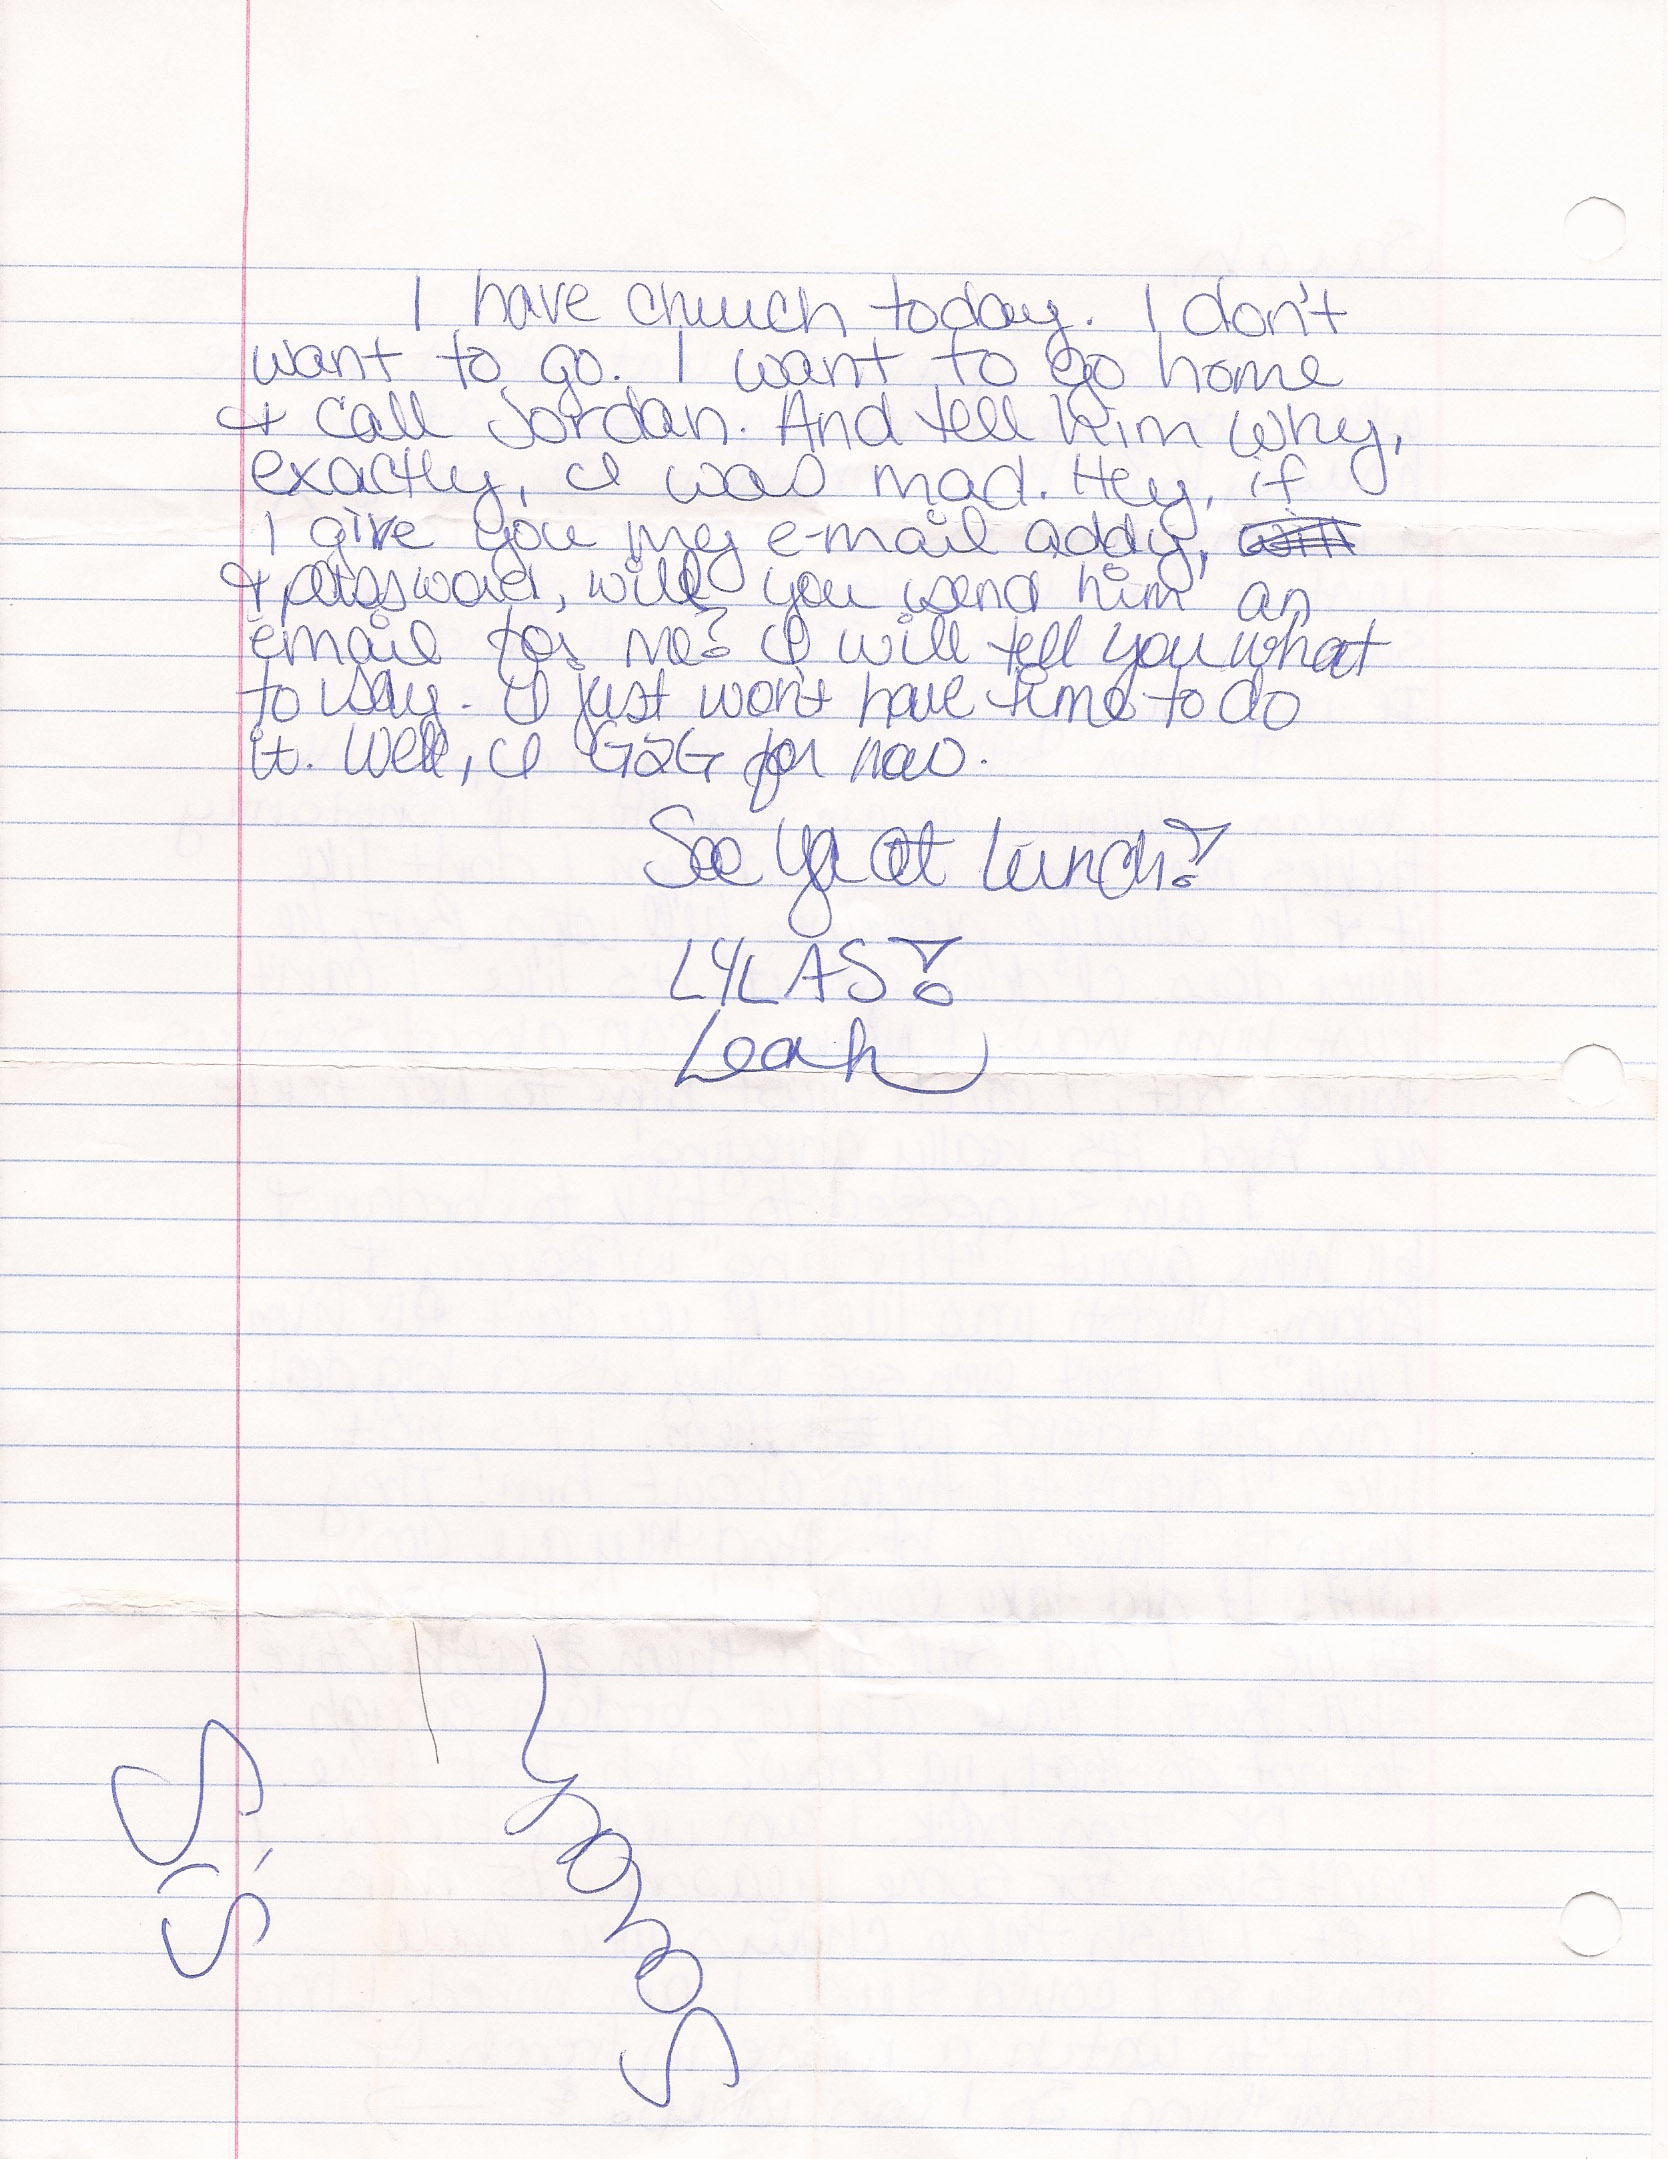 I have church today. I don't
want to go. I want to go home
& call Jordan. And tell him why,
exactly, I was mad. Hey, if
I give you my e-mail addy, will
& password, will you send him an
email for me? I will tell you what
to say. I just wont have time to do
it. Well, I G2G for now.
See ya at lunch!
LYLAS!
Leah